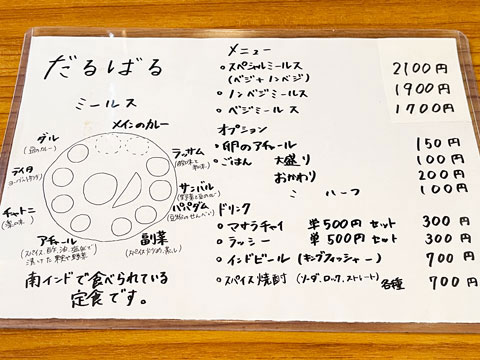 だるばる
ミールス
メインのカレー
ダル
(豆のカレー)
ラッサム
タイタ
サンバル
パパダム
チャトニ
アチャール
副菜
南インドで食べられている
定食です。
メニュー
・スペシャルミールス 2100円
(ベジ+ノンベジ)
・ノンベジミールス 1900円
・ベジミールス 1700円
オプション
・卵のアチャール 150円
・ごはん 大盛り 100円
おかわり 200円
ミニハーフ 100円
ドリンク
・マサラチャイ 単500円 セット 300円
・ラッシー 単500円 セット 300円
・インドビール (キングフィッシャー) 700円
・スパイス焼酎 (ソーダ、ロック、ストレート) 各種 700円